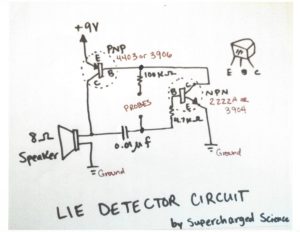 +9V
PNP
4403 or 3906
E
B
C
100KΩ
PROBES
B
C
E
NPN
2222A or
3904
4.7KΩ
E B C
8Ω
Speaker
0.01µf
Ground
Ground
LIE DETECTOR CIRCUIT
by Supercharged Science